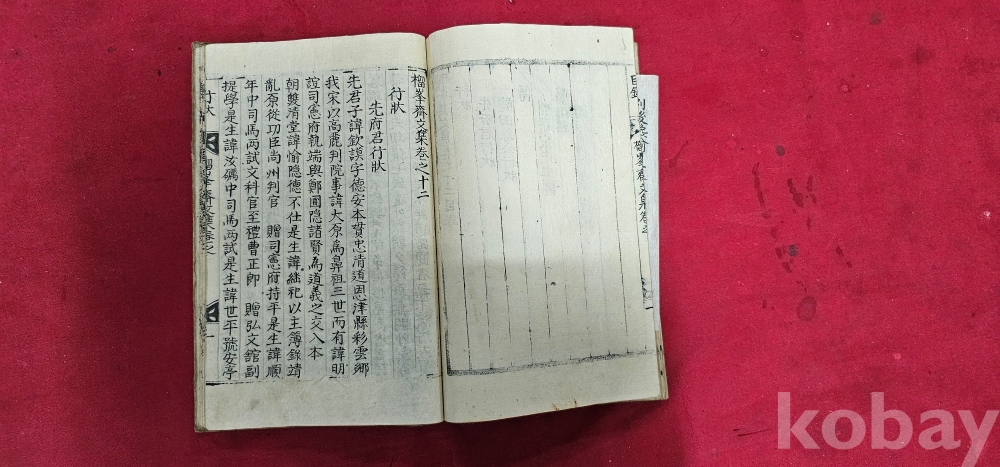 榴峯齋文集卷之十二
行狀
先府君行狀
先君子諱欽謨字德安本貫忠清道恩津縣彩雲鄉
我宋以高麗判院事諱大原爲鼻祖三世而有諱明
誼司憲府執端與鄭圃隱諸賢爲道義之交入本
朝雙清堂諱愉隱德不仕是生諱繼祀以主簿錄靖
亂原從功臣尚州判官 贈司憲府持平是生諱順
年中司馬兩試文科官至禮曹正郎 贈弘文舘副
提學是生諱汝礪中司馬兩試是生諱世平號安亭
行狀
一
kobay